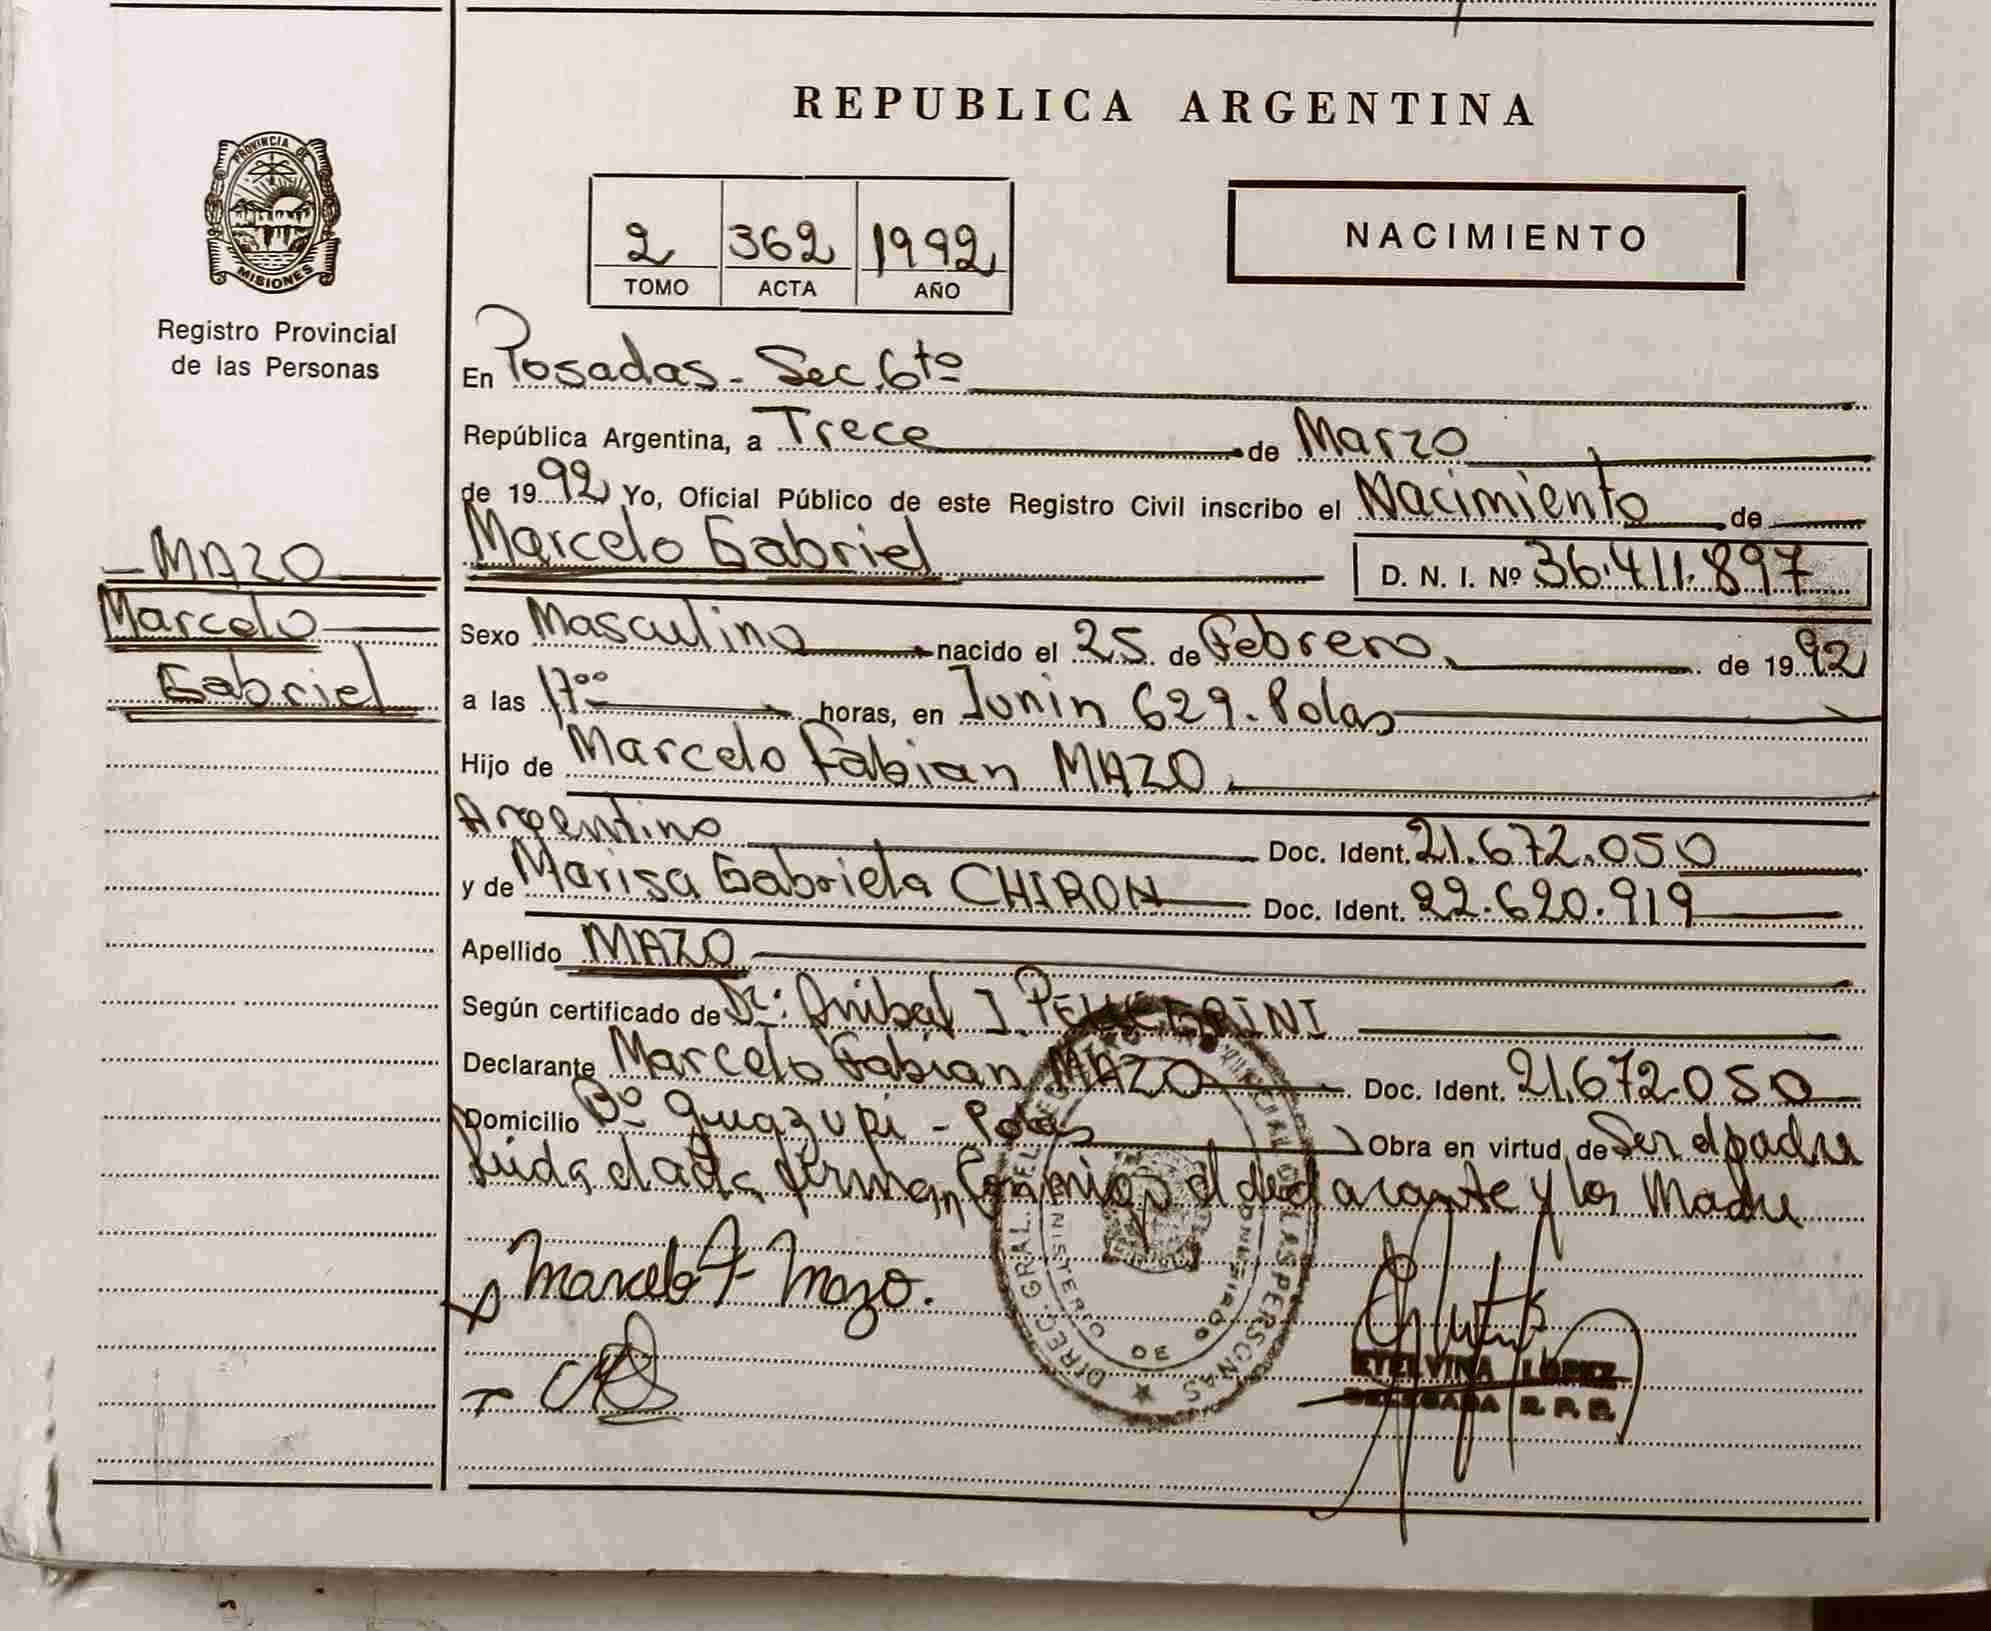 REPUBLICA ARGENTINA
PROVINCIA DE
MISIONES
Registro Provincial
de las Personas
2 362 1992
TOMO ACTA AÑO
NACIMIENTO
En Posadas - Sec. 6ta
República Argentina, a Trece de Marzo
de 1992 Yo, Oficial Público de este Registro Civil inscribo el Nacimiento de
MAZO
Marcelo
Gabriel
Marcelo Gabriel D. N. I. Nº 36.411.897
Sexo Masculino nacido el 25 de Febrero de 1992
a las 17⁰⁰ horas, en Junin 629. Pdas
Hijo de Marcelo Fabian MAZO
Argentino Doc. Ident. 21.672.050
y de Marisa Gabriela CHIRON Doc. Ident. 22.620.919
Apellido MAZO
Según certificado de Dr: Anibal J. PELLEGRINI
Declarante Marcelo Fabian MAZO Doc. Ident. 21.672.050
Domicilio Bº Guazupi - Pdas Obra en virtud de Ser el padre
Leida el acta firman conmigo el declarante y la Madre
Marcelo F. Mazo.
DIREC. GRAL. DEL DE LAS PERSONAS
MINISTERIO DE GOBIERNO
ETELVINA LOPEZ
DELEGADA R. P. P.